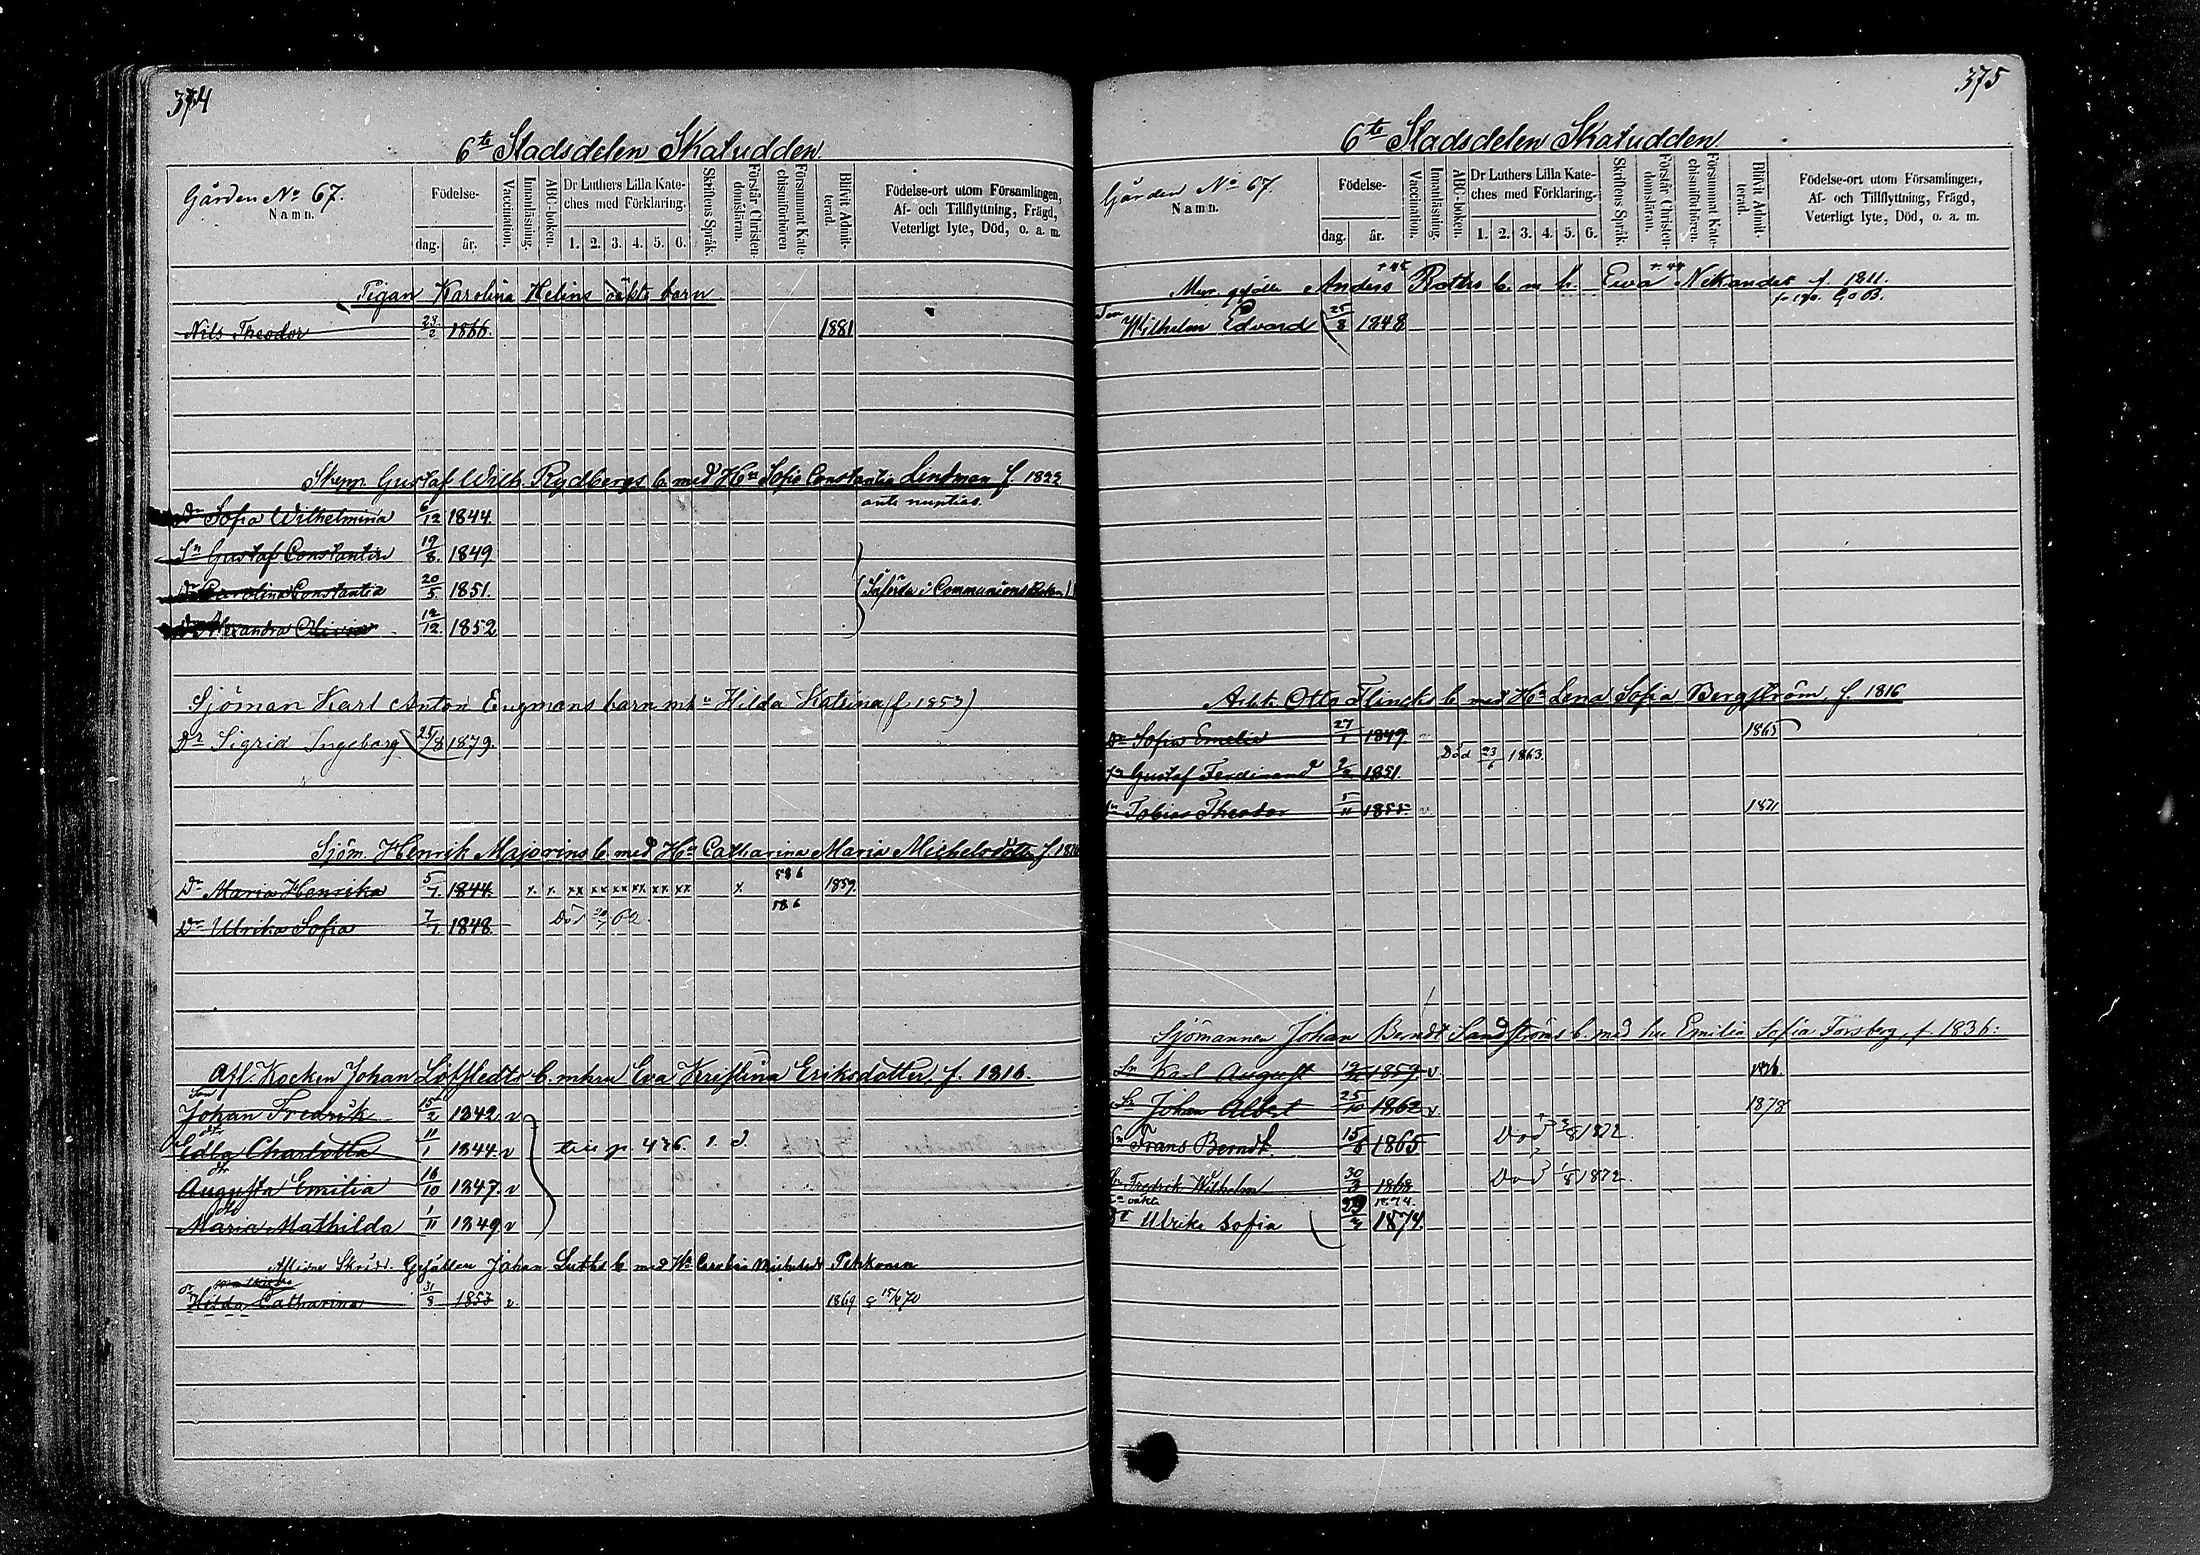 374
6te Stadsdelen Skatudden
Gården No 67.
Namn.
Födelse-
dag. år.
Vaccination.
Innanläsning.
ABC-boken.
Dr Luthers Lilla Kate-
ches med Förklaring.
1. 2. 3. 4. 5. 6.
Skriftens Språk.
Förstår Christen-
domsläran.
Försummat Kate-
chismiförhören
Blifvit Admit-
terad.
Födelse-ort utom Församlingen,
Af- och Tillflyttning, Frägd,
Veterligt lyte, Död, o. a. m.
Pigan Karolina Helins oäkta barn
Nils Theodor 23/3 1866. 1881
Skepp. Gustaf Wilh. Rydbergs b. med Hu Sofia Constantia Lindman f. 1822
Dr Sofia Wilhelmina 6/12 1844. ante nuptias.
Sn Gustaf Constantin 19/8. 1849
Dr Carolina Constantia 20/5. 1851. Införda i Communions Boken
Dr Alexandra Olivia 12/12. 1852
Sjöman Karl Anton Engmans barn m hu Hilda Katrina (f. 1853)
Dr Sigrid Ingeborg 25/8 1879.
Sjöm. Henrik Majorins b. med Hu Catharina Maria Michelsdotter f. 1816
Dr Maria Henrika 5/1. 1844. x x. xx xx xx xx xx xx x 586 1859.
Dr Ulrika Sofia 7/1. 1848. Död 62. 586
Afl. Kocken Johan Löfstedts b. m hu Eva Kristina Eriksdotter, f. 1816.
Son
Johan Fredrik 15/2 1842 v
dtr
Edla Charlotta 11/1 1844 v till p. 436.
dtr
Augusta Emilia 16/10 1847. v
dtr
Maria Mathilda 1/11 1849 v
Aflidne Skrädd. Gesällen Johan Luths b. med Hu Carolina Pekkonen
Dr Hilda Catharina 31/8. 1853 v. 1869 15/6 70
375
6te Stadsdelen Skatudden
Gården No 67.
Namn.
Födelse-
dag. år.
Vaccination.
Innanläsning.
ABC-boken.
Dr Luthers Lilla Kate-
ches med Förklaring.
1. 2. 3. 4. 5. 6.
Skriftens Språk.
Förstår Christen-
domsläran.
Försummat Kate-
chismiförhören.
Blifvit Admit-
terad.
Födelse-ort utom Församlingen,
Af- och Tillflyttning, Frägd,
Veterligt lyte, Död, o. a. m.
Mur. gesälle Anders Rothes b. m h. Ewa Nikander f. 1811.
Son
Wilhelm Edvard 25/8 1848
Arbk. Otto Flincks b. med Hu Lena Sofia Bergström, f. 1816
Dr Sofia Emelie 27/1 1849 1865
Död 23/6 1863.
Sn Gustaf Ferdinand 2/2 1851.
Sn Tobias Theodor 5/11 1855 v 1871
Sjömannen Johan Berndt Sandströms b. med hu Emilia Sofia Forsberg, f. 1836.
Sn Karl August 1859. v. 1876.
Sn Johan Albert 25/10 1862 v 1878
Sn Frans Berndt 15/6 1865 Död 1872.
Sn Fredrik Wilhelm 30/3 1868 Död 1/8 1872.
oäkta
Dr Ulrika Sofia 1874.